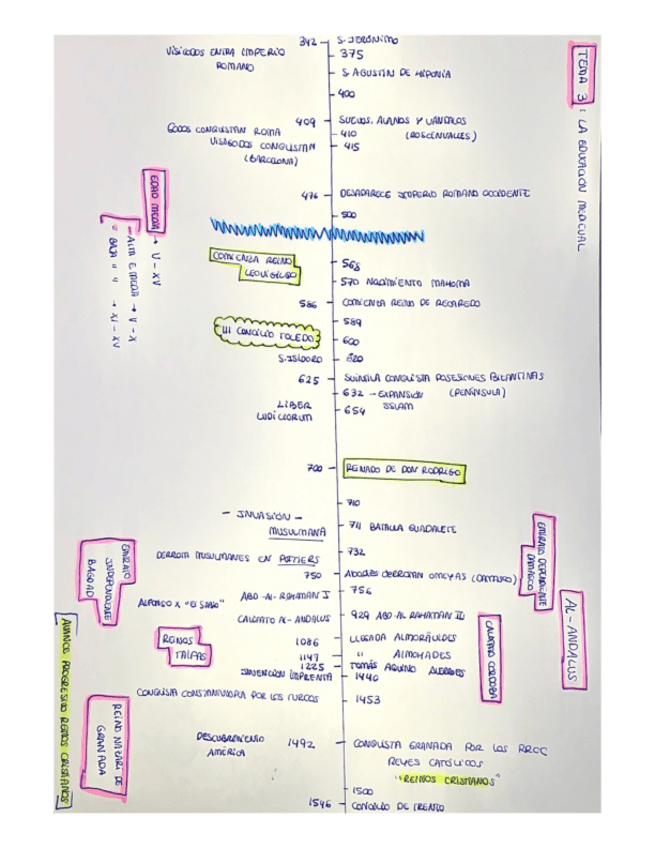 TEMA 3: LA EDUCACIÓN MEDIEVAL
342 S. JERÓNIMO
VISIGODOS ENTRA IMPERIO
ROMANO
375
S. AGUSTÍN DE HIPONIA
400
409 SUEVOS, ALANOS Y VÁNDALOS
(ROSCENVALLES)
GODOS CONQUISTAN ROMA
410
VISAGODOS CONQUISTAN
(BARCELONA)
415
476 DESAPARECE IMPERIO ROMANO OCCIDENTE
500
EDAD MEDIA → V - XV
- ALTA E. MEDIA → V - X
- BAJA " " → XI - XV
COMIENZA REINO
LEOVIGILDO
568
570 NACIMIENTO MAHOMA
586 COMIENZA REINO DE RECAREDO
589
III CONCILIO TOLEDO
600
S. ISIDORO 620
625 SUINTILA CONQUISTA POSESIONES BIZANTINAS
(PENÍNSULA)
632 - EXPANSIÓN
ISLAM
LIBER
IUDICIORUM
654
700 REINADO DE DON RODRIGO
710
- INVASIÓN -
MUSULMANA
711 BATALLA GUADALETE
732
DERROTA MUSULMANES EN POITIERS
750 ABASÍES DERROTAN OMEYAS (DAMASCO)
756
ABD-AL-RAHAMAN I
ALFONSO X "El SABIO"
CALIFATO AL-ANDALUS 929 ABD AL RAHAMAN III
1086 LLEGADA ALMORÁVIDES
1147 " ALMOHADES
1225 TOMÁS AQUINO
INVENCIÓN IMPRENTA 1440
CONQUISTA CONSTANTINOPLA POR LOS TURCOS 1453
DESCUBRIMIENTO
AMÉRICA
1492 CONQUISTA GRANADA POR LOS RRCC
REYES CATÓLICOS
"REINOS CRISTIANOS"
1500
1546 CONCILIO DE TRENTO
EMIRATO
INDEPENDIENTE
BAGDAD
REINOS
TAIFAS
REINO NAZARÍ DE
GRANADA
AVANCE PROGRESIVO REINOS CRISTIANOS
EMIRATO DEPENDIENTE
DAMASCO
AL-ANDALUS
CALIFATO CÓRDOBA